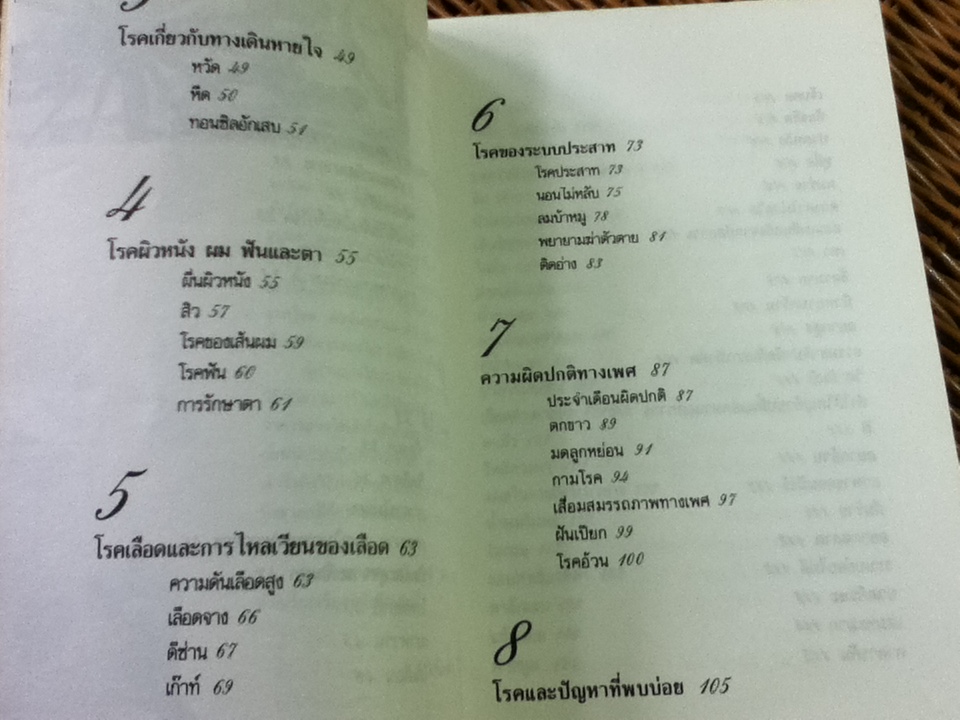 โรคเกี่ยวกับทางเดินหายใจ 49
หวัด 49
หืด 50
ทอนซิลอักเสบ 51
4
โรคผิวหนัง ผม ฟันและตา 55
ผื่นผิวหนัง 55
สิว 57
โรคของเส้นผม 59
โรคฟัน 60
การรักษาตา 61
5
โรคเลือดและการไหลเวียนของเลือด 63
ความดันเลือดสูง 63
เลือดจาง 66
ดีซ่าน 67
เก๊าท์ 69
6
โรคของระบบประสาท 73
โรคประสาท 73
นอนไม่หลับ 75
ลมบ้าหมู 78
พยายามฆ่าตัวตาย 81
ติดอ่าง 83
7
ความผิดปกติทางเพศ 87
ประจำเดือนผิดปกติ 87
ตกขาว 89
มดลูกหย่อน 91
กามโรค 94
เสื่อมสมรรถภาพทางเพศ 97
ฝันเปียก 99
โรคอ้วน 100
8
โรคและปัญหาที่พบบ่อย 105